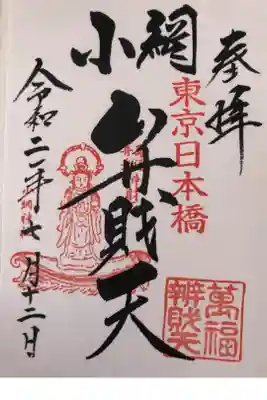 奉拝
東京日本橋
小網
弁財天
令和二年七月十二日
萬福
辨財天